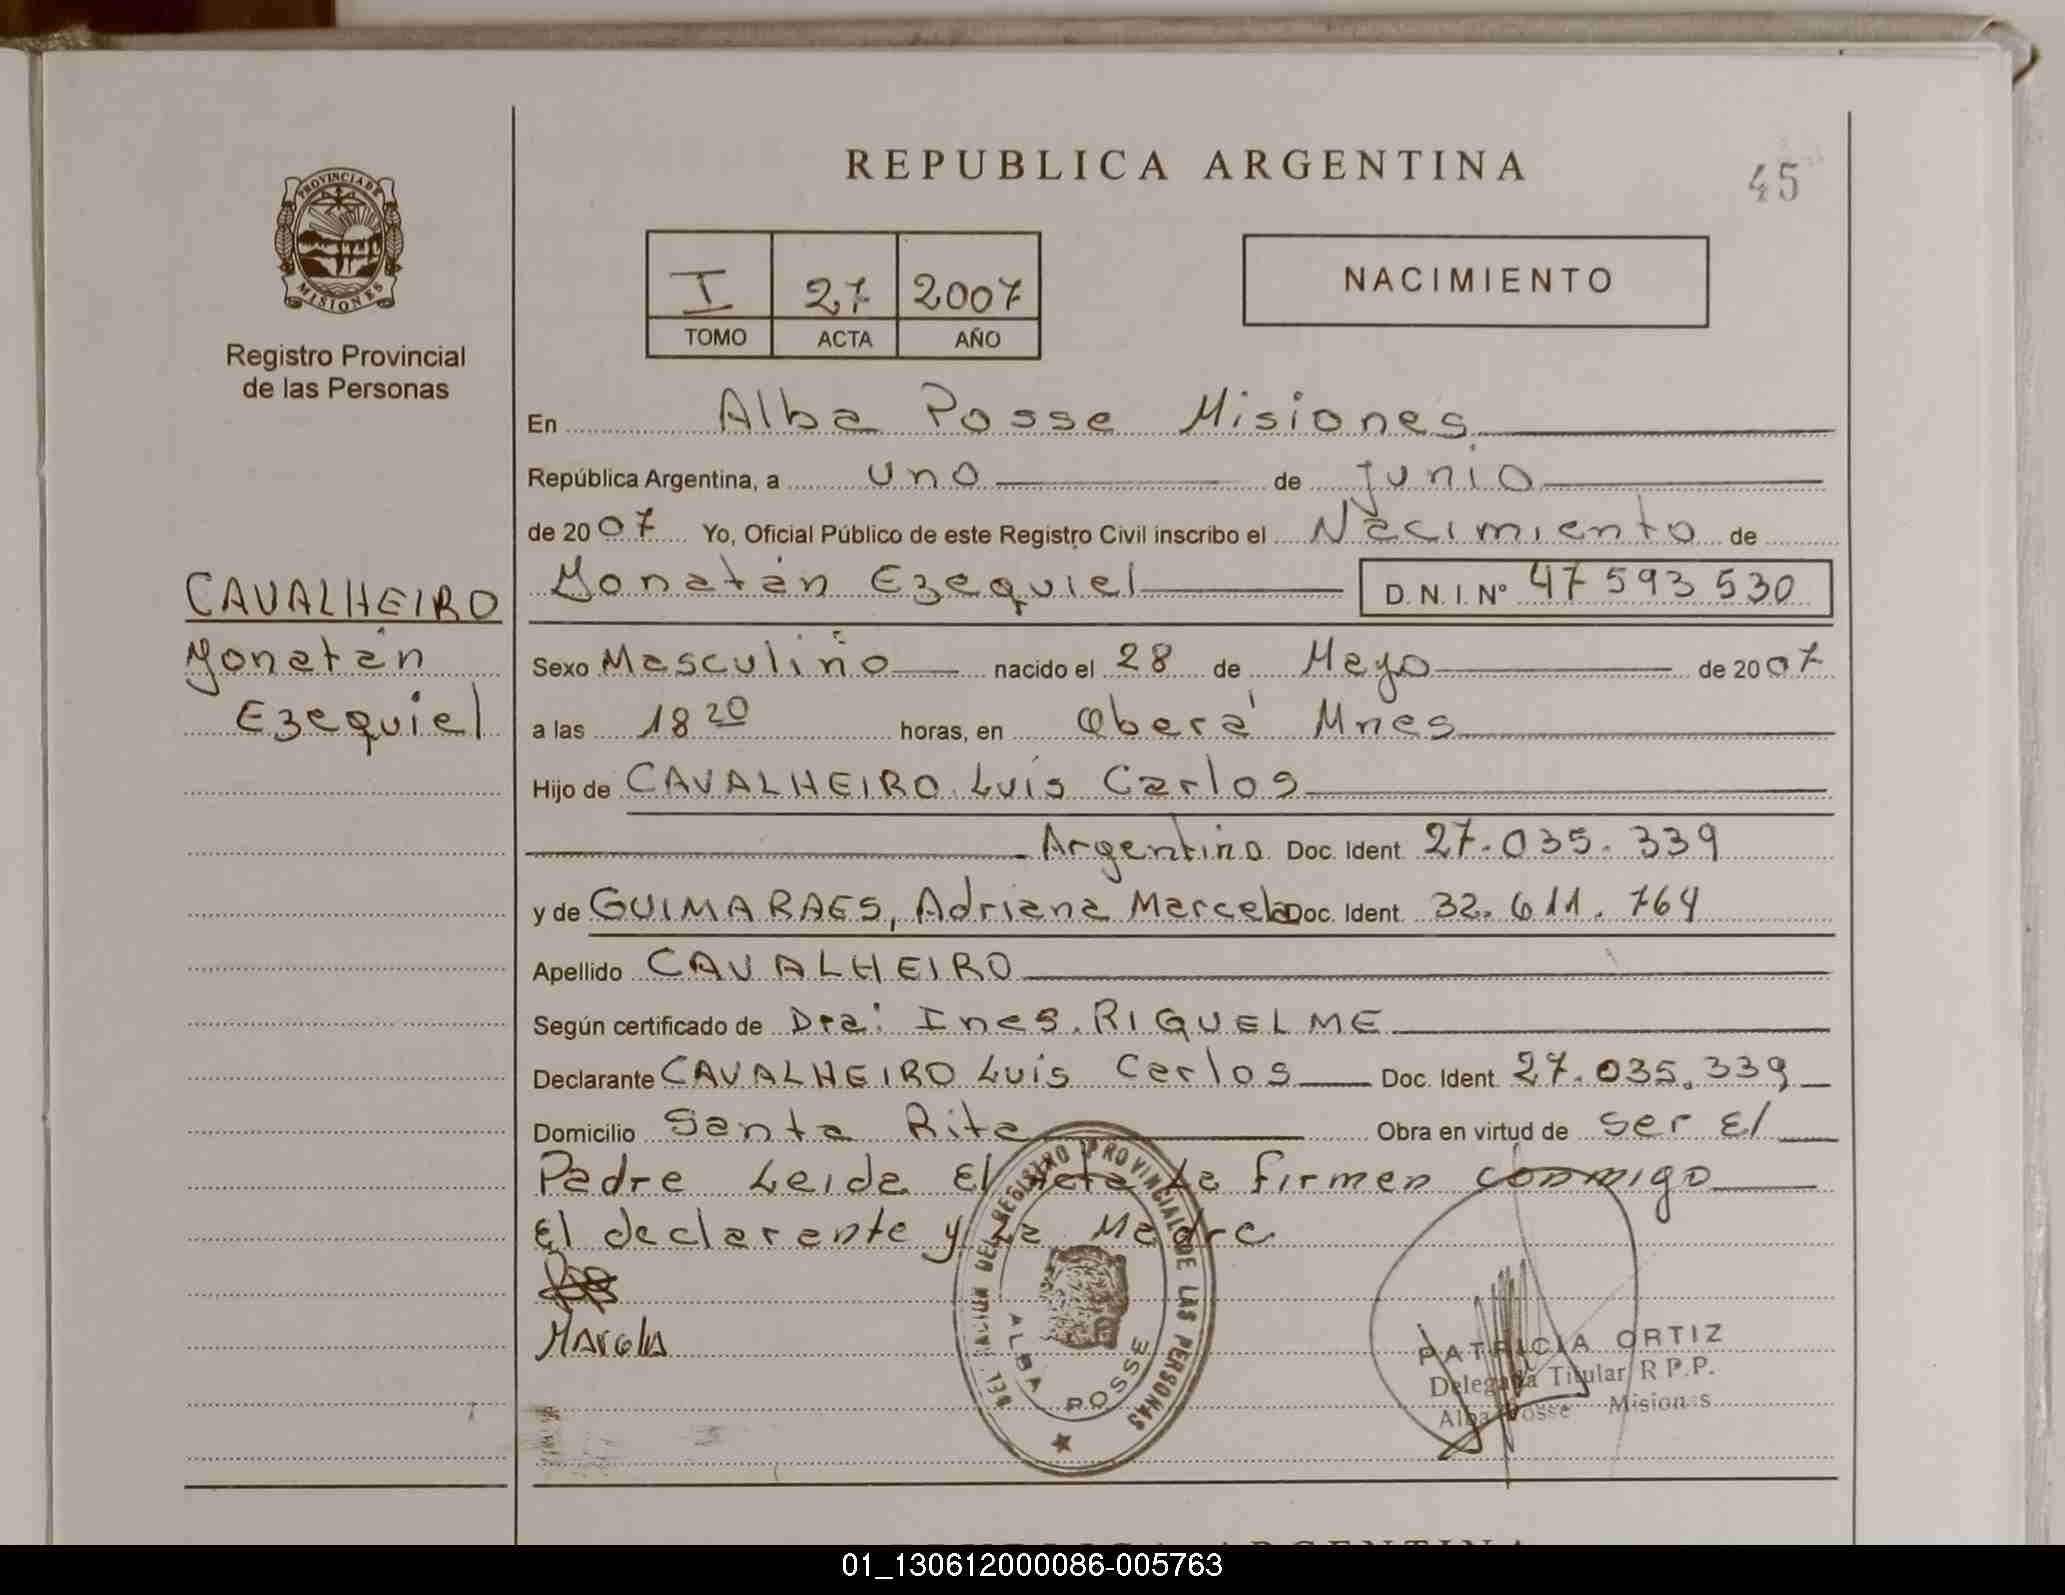 REPUBLICA ARGENTINA
45
PROVINCIA DE
MISIONES
Registro Provincial
de las Personas
I 27 2007
TOMO ACTA AÑO
NACIMIENTO
En Alba Posse Misiones
República Argentina, a uno de junio
de 2007 Yo, Oficial Público de este Registro Civil inscribo el Nacimiento de
Yonatán Ezequiel D.N.I. Nº 47 593 530
CAVALHEIRO
Yonatán
Ezequiel
Sexo Masculino nacido el 28 de Mayo de 2007
a las 18 20 horas, en Oberá Mnes
Hijo de CAVALHEIRO Luis Carlos
Argentino Doc. Ident. 27.035.339
y de GUIMARAES, Adriana Marcela Doc. Ident. 32.611.764
Apellido CAVALHEIRO
Según certificado de Dra: Ines RIQUELME
Declarante CAVALHEIRO Luis Carlos Doc. Ident. 27.035.339
Domicilio Santa Rita Obra en virtud de ser El
Padre Leida El Acta La firman conmigo
El declarante y La Madre
Marcela
DEL REGISTRO PROVINCIAL DE LAS PERSONAS
ALBA POSSE
PATRICIA ORTIZ
Delegada Titular R.P.P.
Alba Posse Misiones
01_130612000086-005763